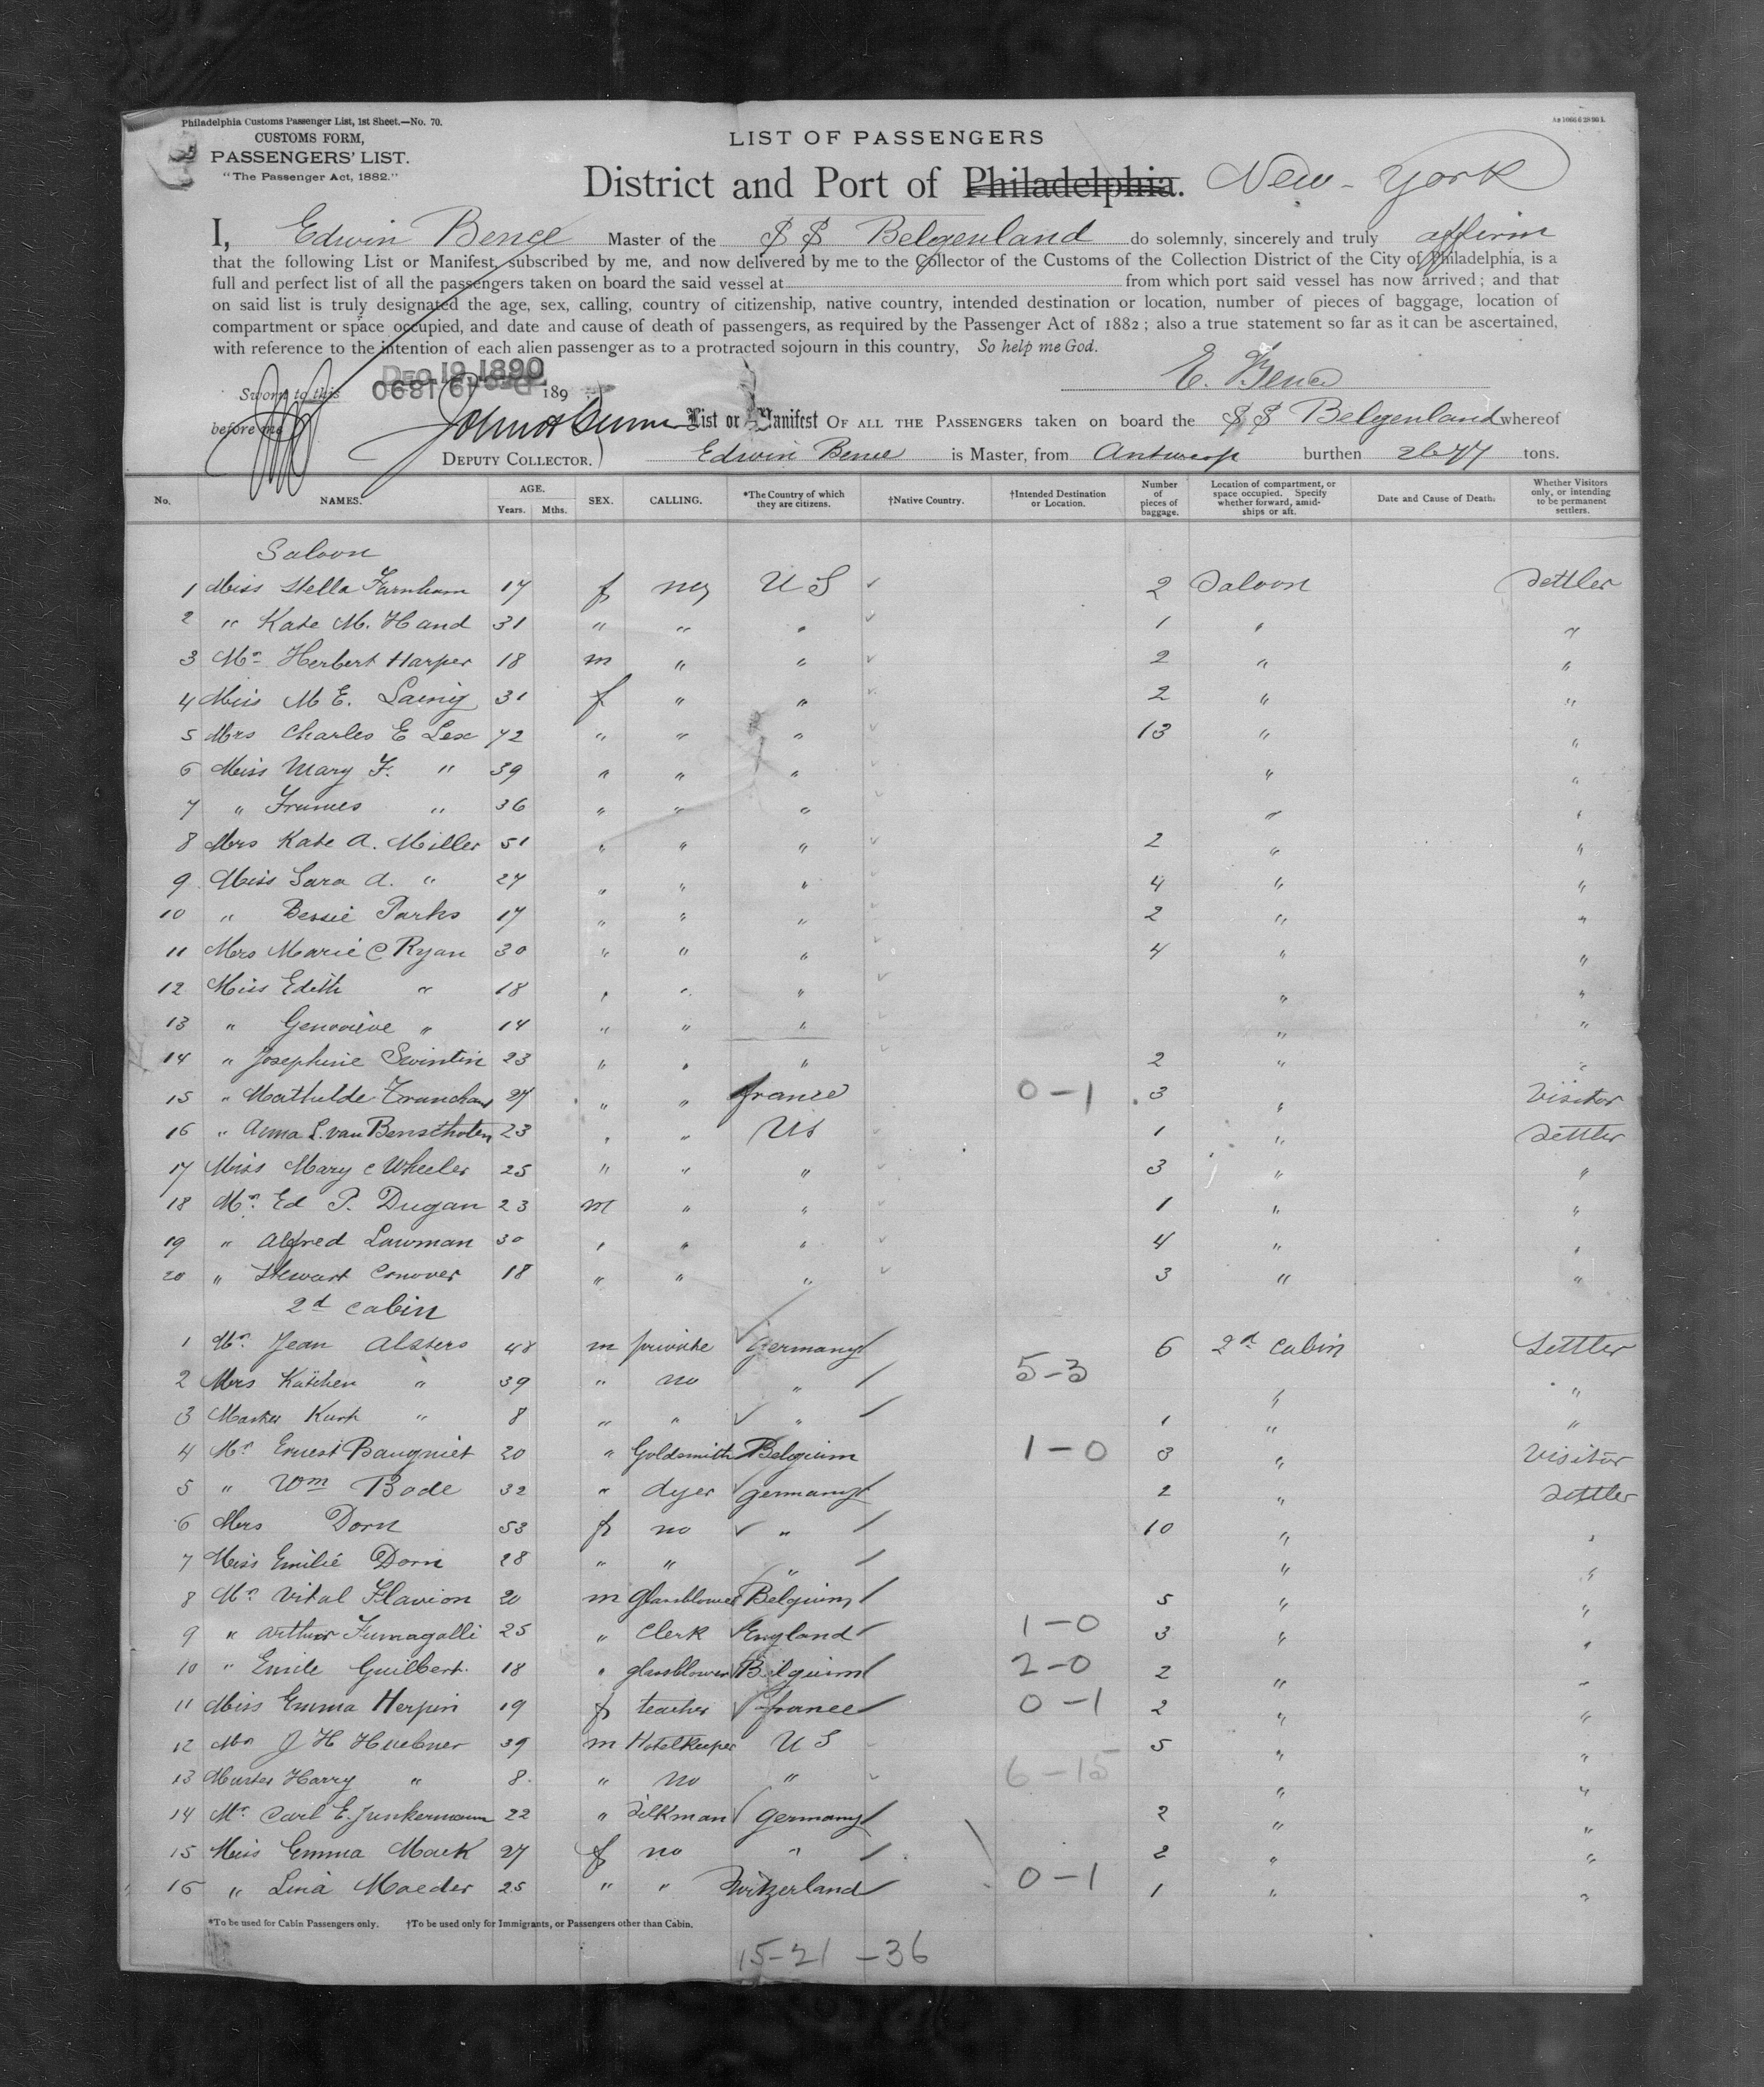 Philadelphia Customs Passenger List, 1st Sheet.—No. 70.
CUSTOMS FORM,
PASSENGERS' LIST.
"The Passenger Act, 1882."
LIST OF PASSENGERS
District and Port of Philadelphia. New-York
I, Edwin Bence Master of the SS Belgenland do solemnly, sincerely and truly affirm
that the following List or Manifest, subscribed by me, and now delivered by me to the Collector of the Customs of the Collection District of the City of Philadelphia, is a
full and perfect list of all the passengers taken on board the said vessel at from which port said vessel has now arrived; and that
on said list is truly designated the age, sex, calling, country of citizenship, native country, intended destination or location, number of pieces of baggage, location of
compartment or space occupied, and date and cause of death of passengers, as required by the Passenger Act of 1882; also a true statement so far as it can be ascertained,
with reference to the intention of each alien passenger as to a protracted sojourn in this country, So help me God.
E. Bence
Sworn to this DEC 19 1890 189
before me List or Manifest OF ALL THE PASSENGERS taken on board the SS Belgenland whereof
DEPUTY COLLECTOR. Edwin Bence is Master, from Antwerp burthen 2677 tons.
No. NAMES. AGE. Years. Mths. SEX. CALLING. *The Country of which they are citizens. †Native Country. †Intended Destination or Location. Number of pieces of baggage. Location of compartment, or space occupied. Specify whether forward, amidships or aft. Date and Cause of Death. Whether Visitors only, or intending to be permanent settlers.
Saloon
1 Miss Stella Farnham 17 f no U S 2 Saloon Settler
2 " Kate M. Hand 31 " " " 1 " "
3 Mr Herbert Harper 18 m " " 2 " "
4 Miss M E. Laing 31 f " " 2 " "
5 Mrs Charles E Lex 72 " " " 13 " "
6 Miss Mary F. " 39 " " " " "
7 " " 36 " " " " "
8 Mrs Kate A. Miller 51 " " " 2 " "
9 Miss Sara A. " 27 " " " 4 " "
10 " Bessie Parks 17 " " " 2 " "
11 Mrs Marie C Ryan 30 " " " 4 " "
12 Miss Edith " 18 " " " " "
13 " Genevieve " 14 " " " " "
14 " Josephine Swintin 23 " " " 2 " "
15 " Mathulde 27 " " france 0-1 3 " Visitor
16 " Anna L. van Bensthoten 23 " " US 1 " Settler
17 Miss Mary C Wheeler 25 " " " 3 " "
18 Mr Ed P. Dugan 23 m " " 1 " "
19 " Alfred Lowman 30 " " " 4 " "
20 " Stewart Conover 18 " " " 3 " "
2d Cabin
1 Mr. Jean Alsters 48 m private Germany 6 2d Cabin Settler
2 Mrs Kätchen " 39 " no " 5-3 " "
3 Master Kurt " 8 " " " 1 " "
4 Mr Ernest Bauquiet 20 " Goldsmith Belgium 1-0 3 " Visitor
5 " Wm Bode 32 " dyer Germany 2 " Settler
6 Mrs Dorn 53 f no " 10 " "
7 Miss Emilie Dorn 28 " " " " "
8 Mr Vital Flavion 20 m glassblower Belgium 5 " "
9 " Arthur Fumagalli 25 " Clerk England 1-0 3 " "
10 " Emile Guilbert 18 " glassblower Belgium 2-0 2 " "
11 Miss Emma Herpin 19 f teacher france 0-1 2 " "
12 Mr J H Huebner 39 m Hotelkeeper U S 5 " "
13 Master Harry " 8 " no " 6-15 " "
14 Mr Carl E. Junkermann 22 " Silkman Germany 2 " "
15 Miss Emma Mack 27 f no " 2 " "
16 " Lina Maeder 25 " " Switzerland 0-1 1 " "
*To be used for Cabin Passengers only. †To be used only for Immigrants, or Passengers other than Cabin.
15-21 -36